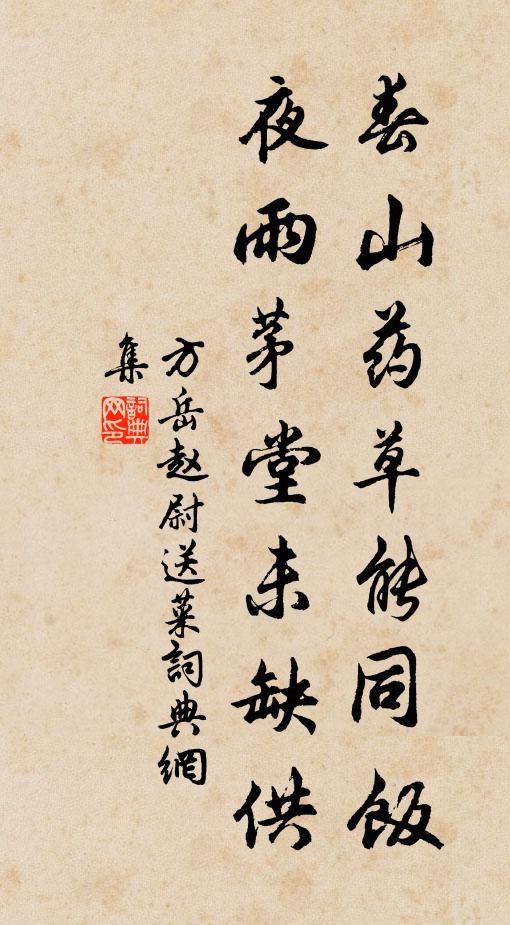 春山药草能同飯
夜雨茅堂未缺供
方岳赵尉送菜詞典網
集
詞典
网印